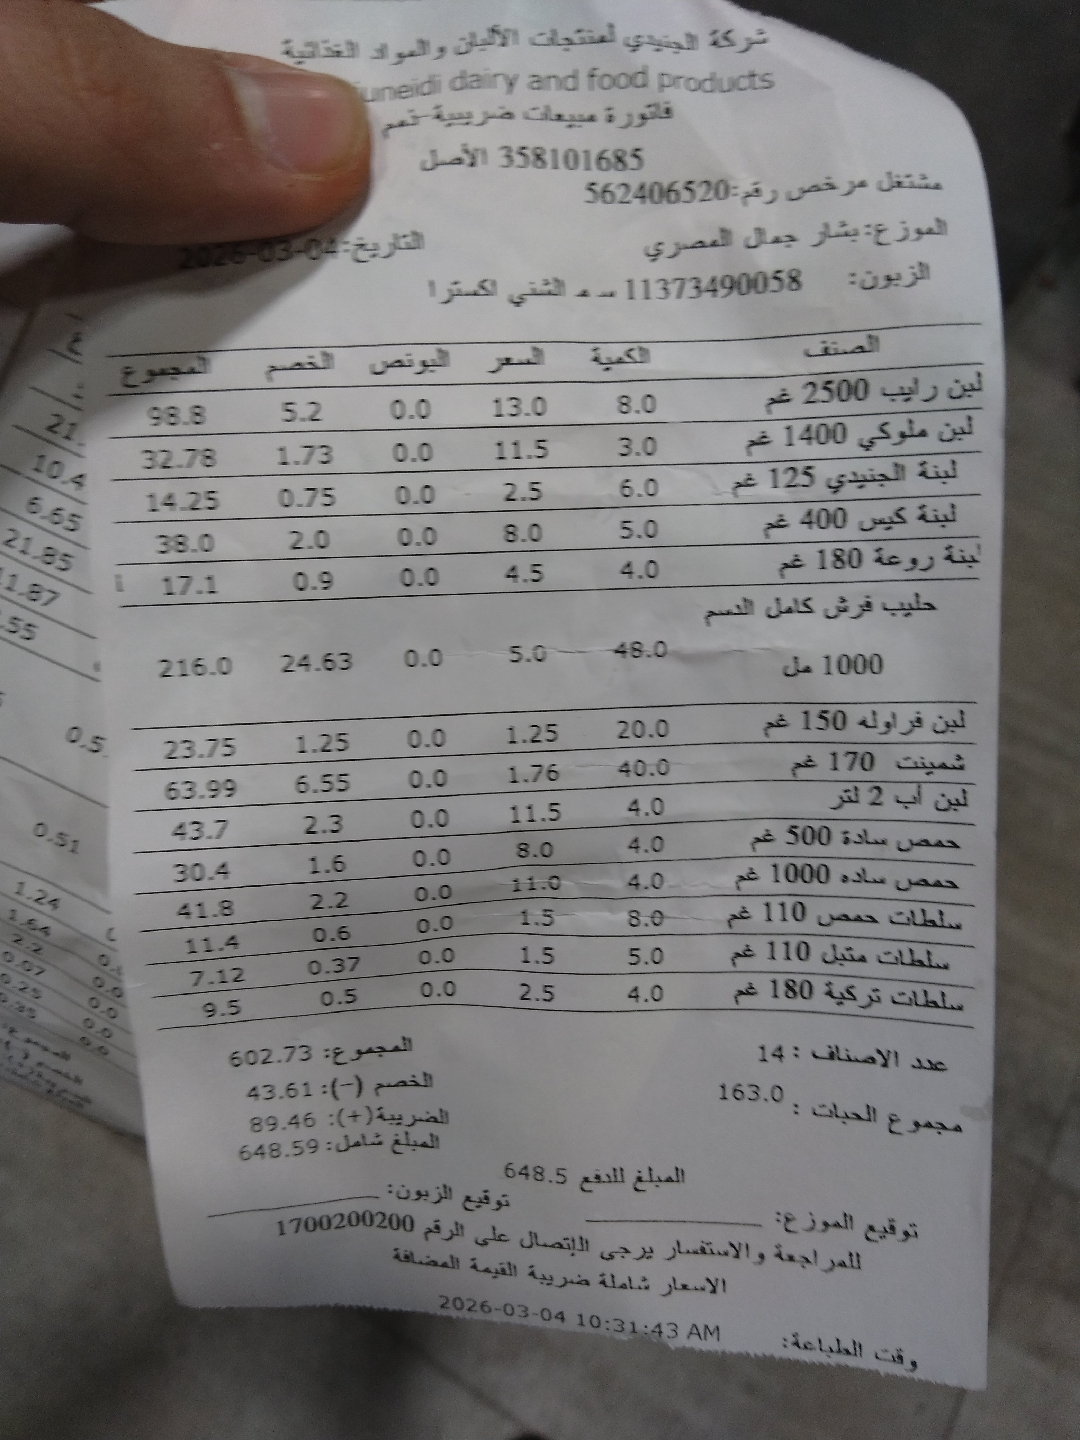 شركة الجنيدي لمنتجات الألبان والمواد الغذائية
uneidi dairy and food products
فاتورة مبيعات ضريبية-ذمم
358101685 الأصل
مشتغل مرخص رقم:562406520
الموزع:بشار جمال المصري التاريخ:2026-03-04
الزبون: 11373490058 - الشني اكسترا
الصنف الكمية السعر البونص الخصم المجموع
لبن رايب 2500 غم 8.0 13.0 0.0 5.2 98.8
لبن ملوكي 1400 غم 3.0 11.5 0.0 1.73 32.78
لبنة الجنيدي 125 غم 6.0 2.5 0.0 0.75 14.25
لبنة كيس 400 غم 5.0 8.0 0.0 2.0 38.0
لبنة روعة 180 غم 4.0 4.5 0.0 0.9 17.1
حليب فرش كامل الدسم
1000 مل 48.0 5.0 0.0 24.63 216.0
لبن فراوله 150 غم 20.0 1.25 0.0 1.25 23.75
شمينت 170 غم 40.0 1.76 0.0 6.55 63.99
لبن أب 2 لتر 4.0 11.5 0.0 2.3 43.7
حمص سادة 500 غم 4.0 8.0 0.0 1.6 30.4
حمص ساده 1000 غم 4.0 11.0 0.0 2.2 41.8
سلطات حمص 110 غم 8.0 1.5 0.0 0.6 11.4
سلطات متبل 110 غم 5.0 1.5 0.0 0.37 7.12
سلطات تركية 180 غم 4.0 2.5 0.0 0.5 9.5
عدد الاصناف : 14 المجموع: 602.73
مجموع الحبات : 163.0 الخصم (-): 43.61
الضريبة(+): 89.46
المبلغ شامل: 648.59
المبلغ للدفع 648.5
توقيع الموزع: توقيع الزبون:
للمراجعة والاستفسار يرجى الإتصال على الرقم 1700200200
الاسعار شاملة ضريبة القيمة المضافة
وقت الطباعة: 2026-03-04 10:31:43 AM
21.
10.4
6.65
21.85
1.87
.55
0.5
0.51
1.24
1.64
2.2 0.0
0.07 0.0
0.25 0.0
0.35 0.0